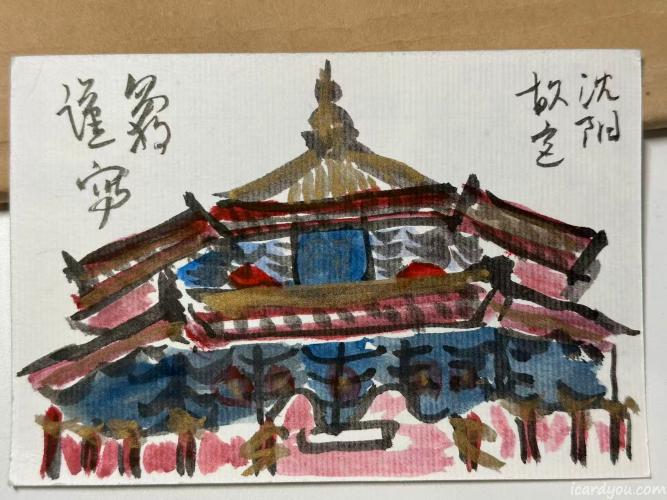 沈阳
故宫
谨写
icardyou.com